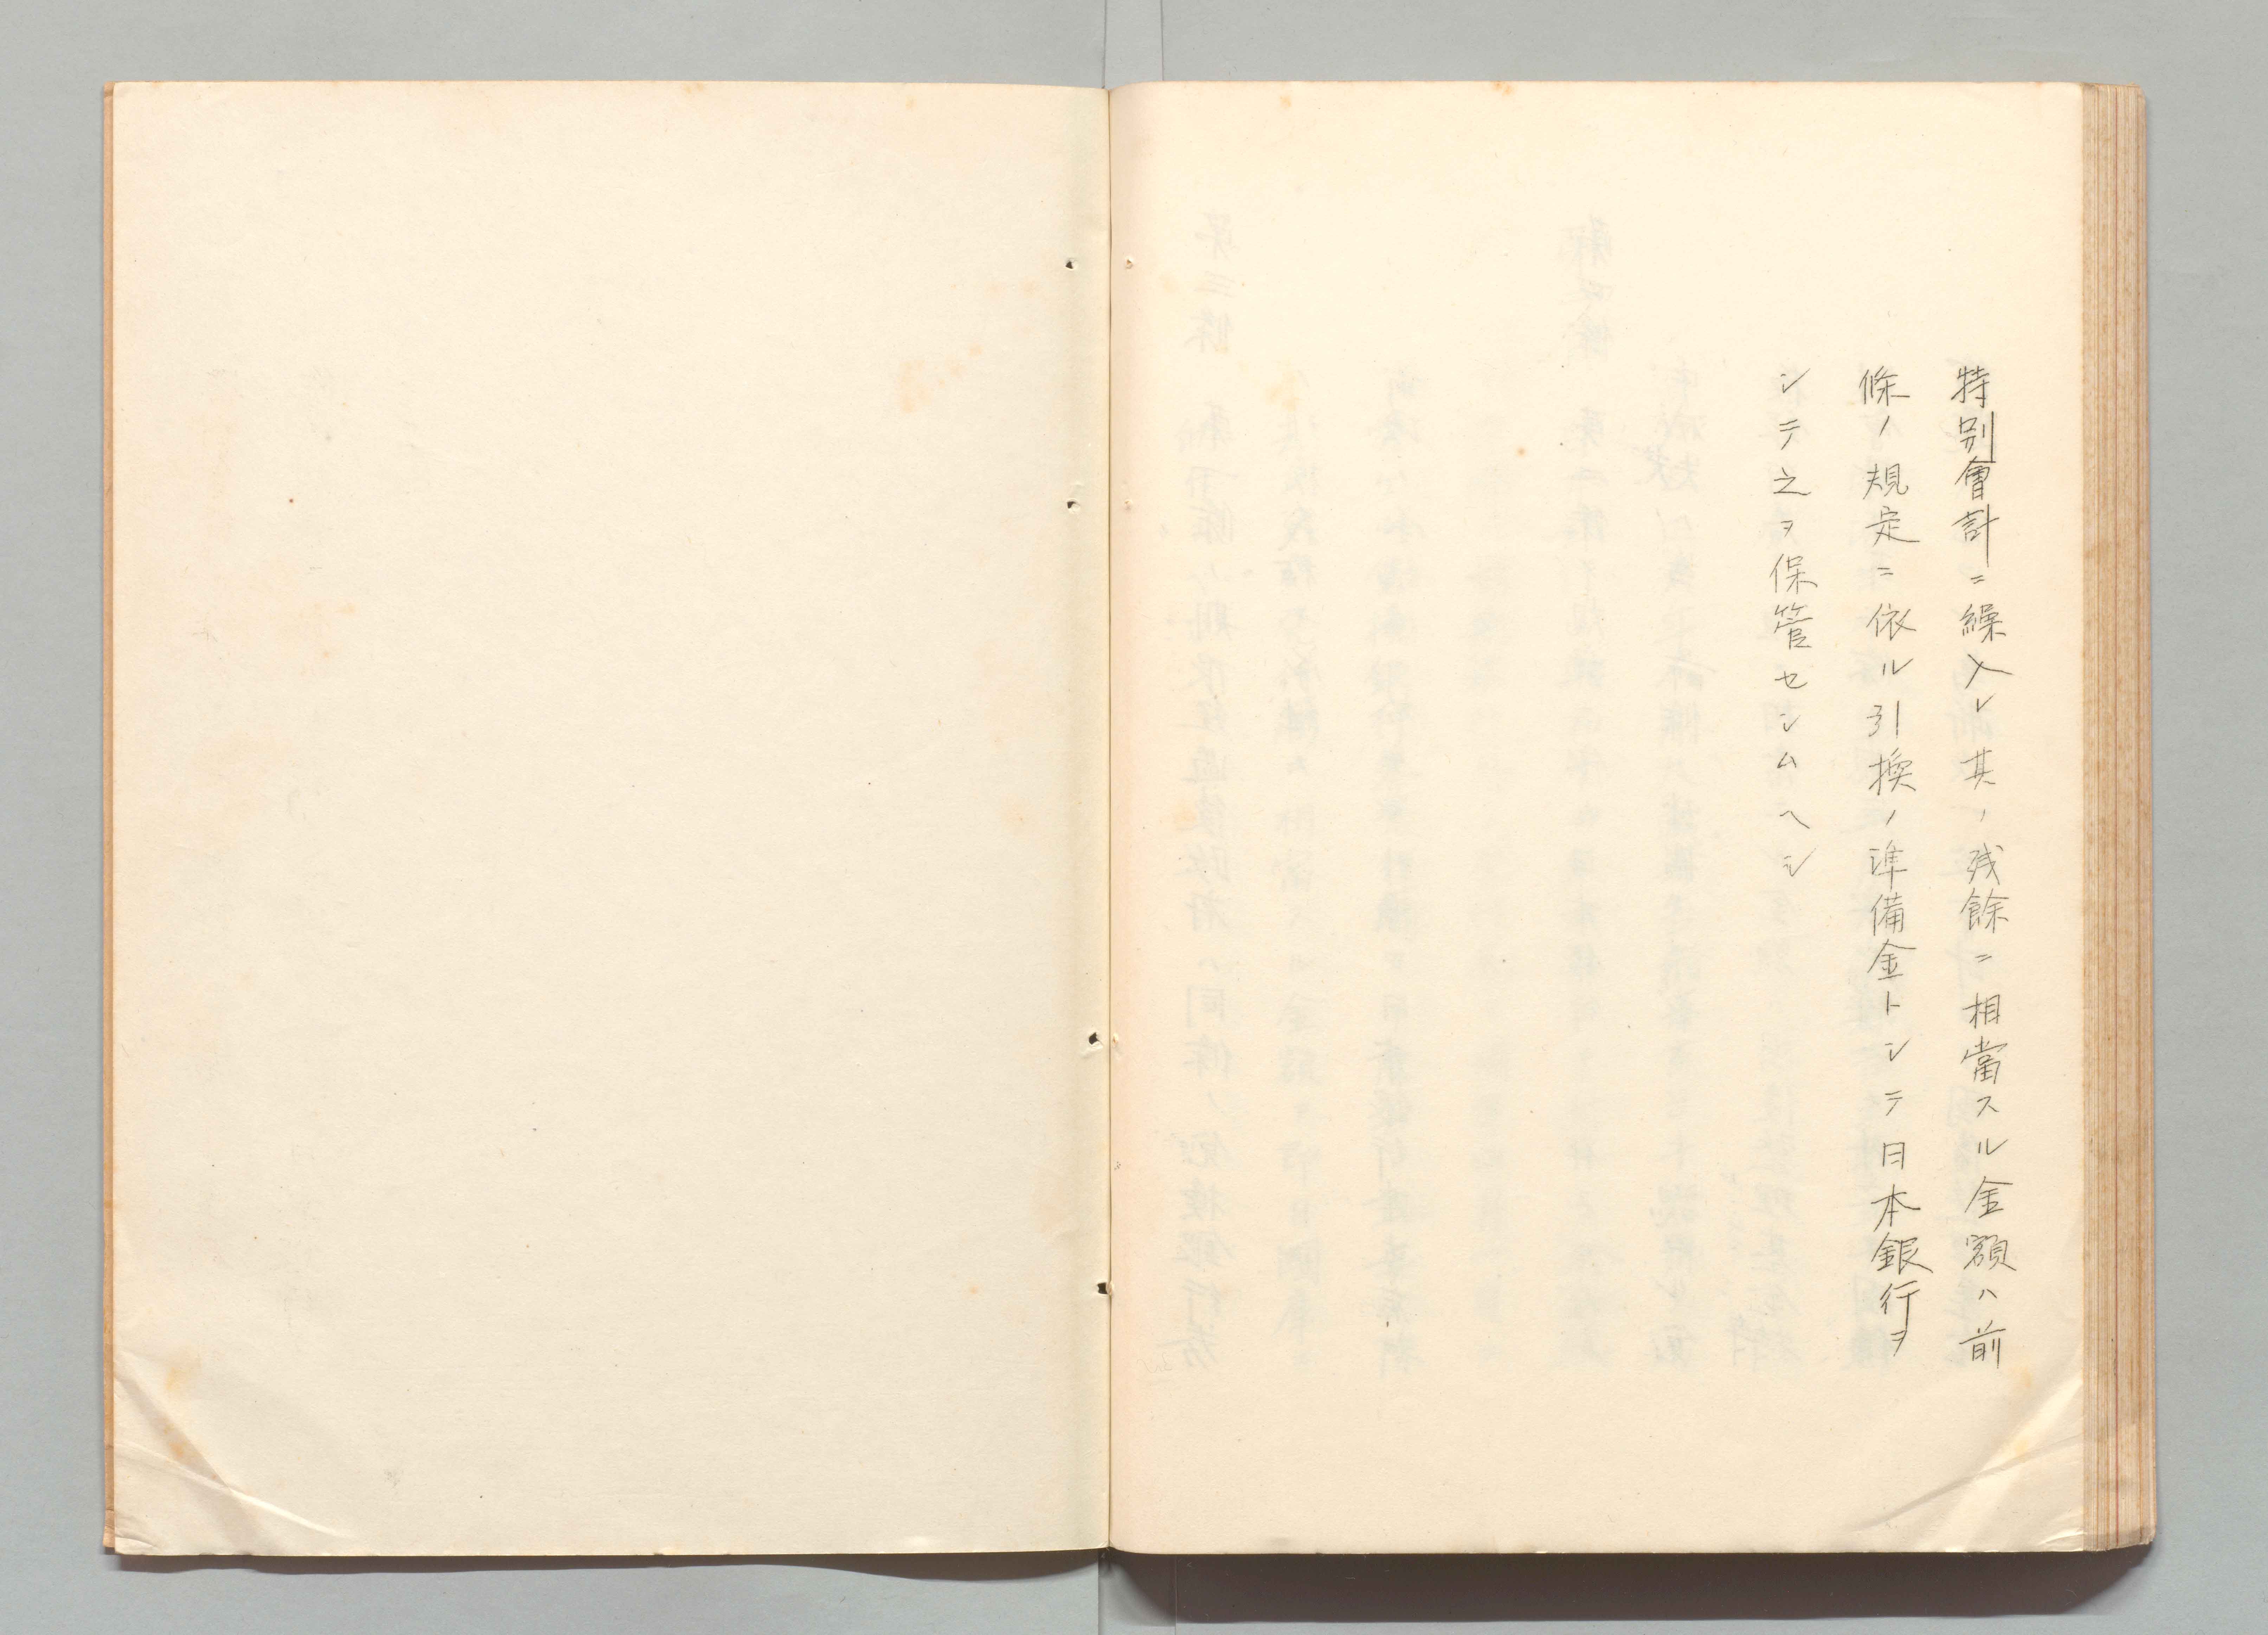 特別會計ニ繰入レ其ノ残餘ニ相當スル金額ハ前
條ノ規定ニ依ル引換ノ準備金トシテ日本銀行ヲ
シテ之ヲ保管セシムヘシ